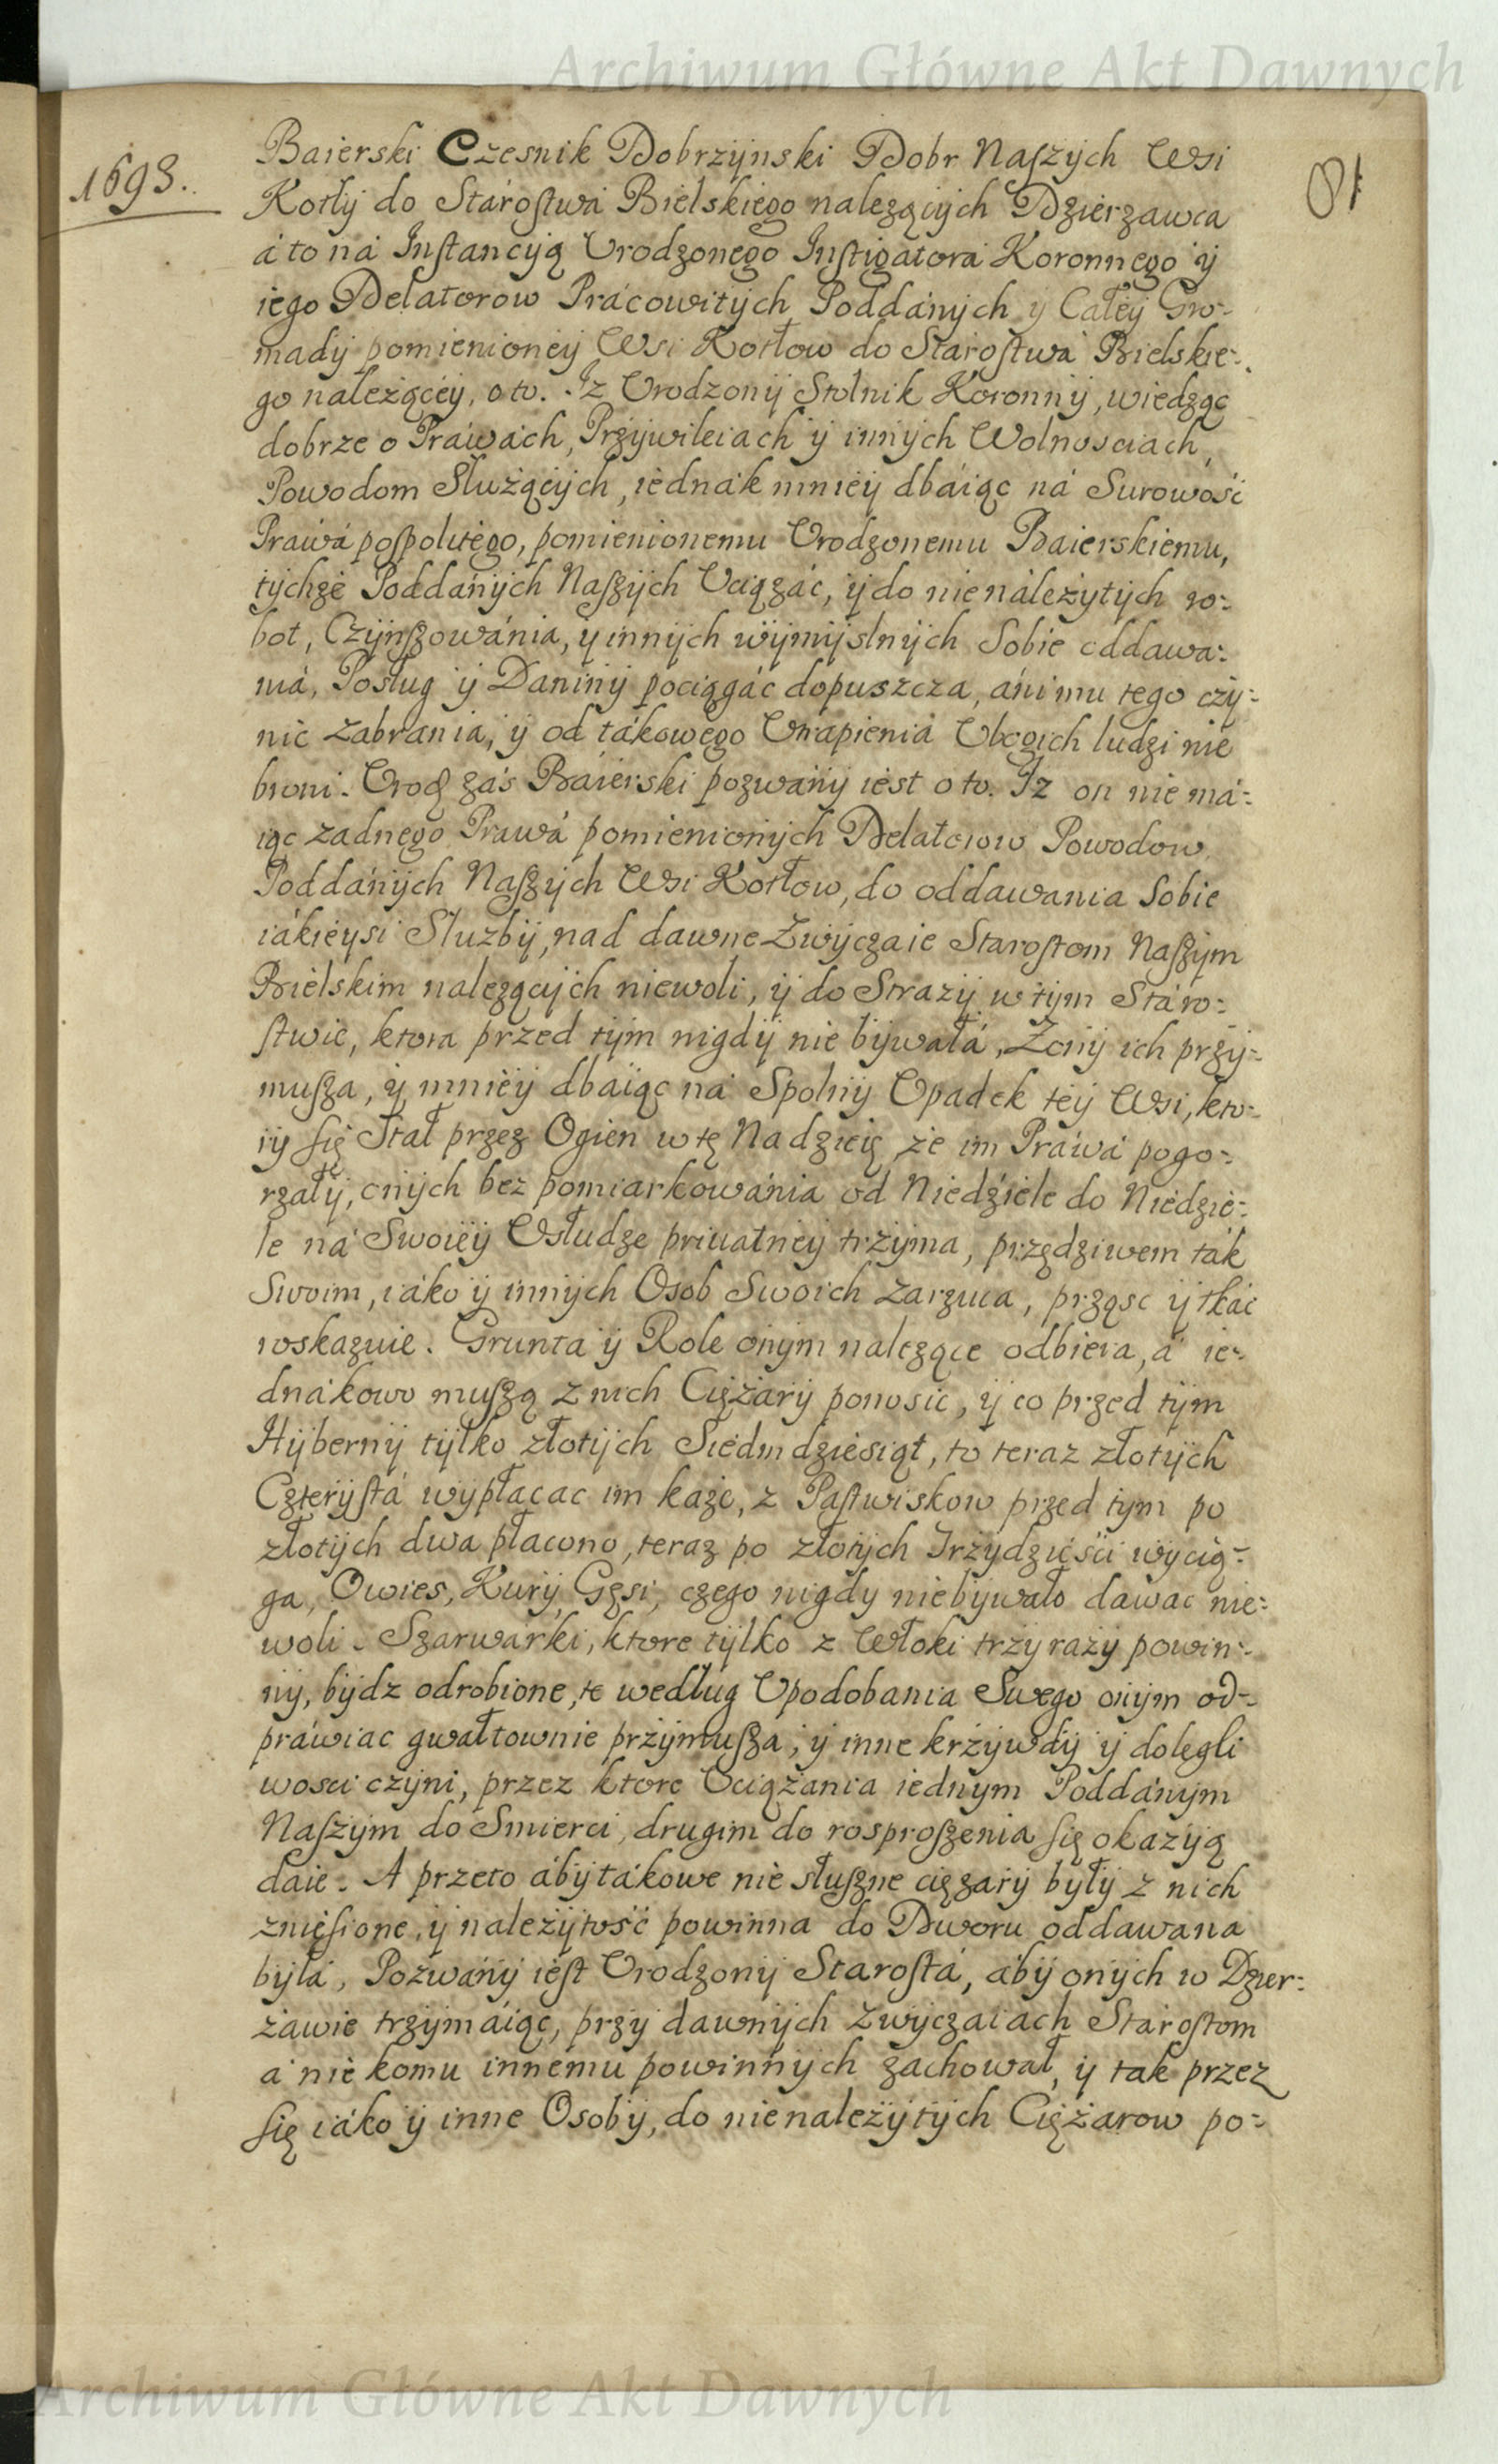 Archiwum Główne Akt Dawnych
1693.
81
Baierski Czesnik Dobrzynski Dobr Naszych Wsi
Kotły do Stárostwá Bielskiego nalezących Dzierzawca
á to ná Instancyą Urodzonego Instigatorá Koronnego y
iego Delatorow Prácowitych Poddánych y Całey Gro-
mady pomienioney Wsi Kotłow do Stárostwá Bielskie-
go należącey, o to. Iz Urodzony Stolnik Koronny, wiedząc
dobrze o Práwách, Przywileiach y innych Wolnosciach,
Powodom Służących, iednák mniey dbáiąc ná Surowość
Práwá pospolitego, pomienionemu Urodzonemu Baierskiemu,
tychże Poddánych Naszych Uciązáć, y do nienáleżytych ro-
bot, Czynszowánia, y innych wymyslnych Sobie oddawa-
niá, Posług y Daniny pociągáć dopuszcza, áni mu tego czy-
nić zabrania, y od tákowego Utrapieniá Ubogich ludzi nie
broni. Urodz zás Baierski pozwány iest o to. Iz on nie má-
iąc zadnego Prawá pomienionych Delatorow Powodow
Poddánych Naszych Wsi Kotłow, do oddawania Sobie
iákieysi Służby, nad dawne Zwyczaie Starostom Naszym
Bielskim nalezących niewoli, y do Strazy w tym Stáro-
stwie, ktora przed tym nigdy nie bywałá, Zony ich przy-
musza, y mniey dbaiąc ná Spolny Upadek tey Wsi, kto-
ry się Stał przez Ogien w tę Nadzieię, że im Práwá pogo-
rzáły, onych bez pomiarkowánia od Niedziele do Niedzie-
le ná Swoiey Usłudze priuatney trzyma, przędziwem ták
Swoim, iáko y innych Osob Swoich zarzuca, prząsc y tkáć
roskazuie. Grunta y Role onym nalezące odbiera, á ie-
dnákowo muszą z nich Ciężáry ponosic, y co przed tym
Hyberny tylko złotych Siedmdziesiąt, to teraz złotych
Czterystá wypłacac im kaze, z Pastwiskow przed tym po
złotych dwa płacono, teraz po złotych Trzydzieści wycią-
ga, Owies, Kury, Gęsi, czego nigdy niebywało dawac nie-
woli. Szarwárki, ktore tylko z Włoki trzy razy powin-
ny, bydz odrobione, te według Upodobania Swego onym od-
práwiac gwałtownie przymusza, y inne krzywdy y dolegli
wosci czyni, przez ktore Uciążania iednym Poddánym
Naszym do Smierci, drugim do rosproszenia się okazyą
daie. A przeto áby tákowe nie słuszne ciężary były z nich
zniesione, y należytość powinna do Dworu oddawana
byłá, Pozwány iest Urodzony Starostá, áby onych w Dzier-
żawie trzymáiąc, przy dawnych zwyczaiach Stárostom
á nie komu innemu powinnych zachował, y tak przez
się iáko y inne Osoby, do nienależytych Ciężarow po-
Archiwum Główne Akt Dawnych